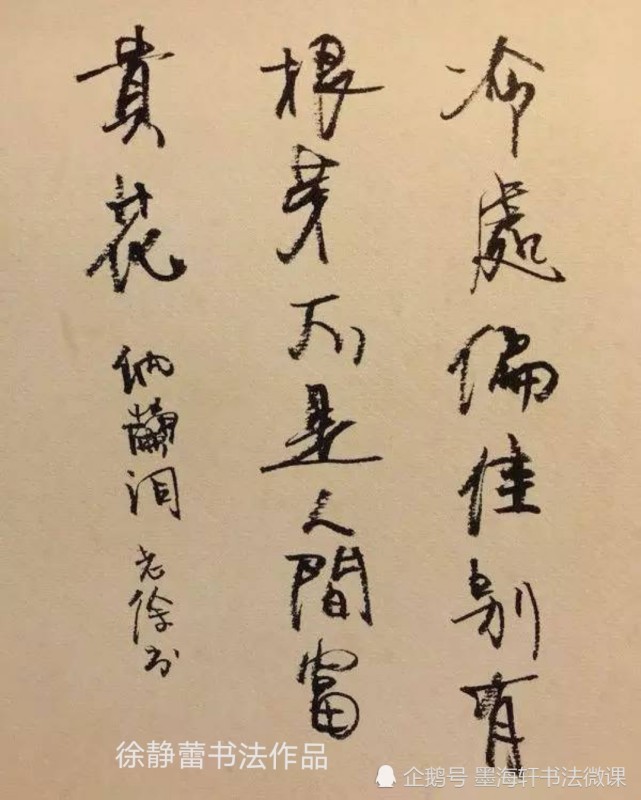 冷處偏佳别有
根芽不是人間富
貴花 纳蘭词 老徐书
徐静蕾书法作品
企鹅号 墨海轩书法微课